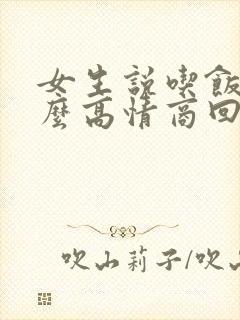 女生説喫飯
麼高情商回
吹山莉子/吹山